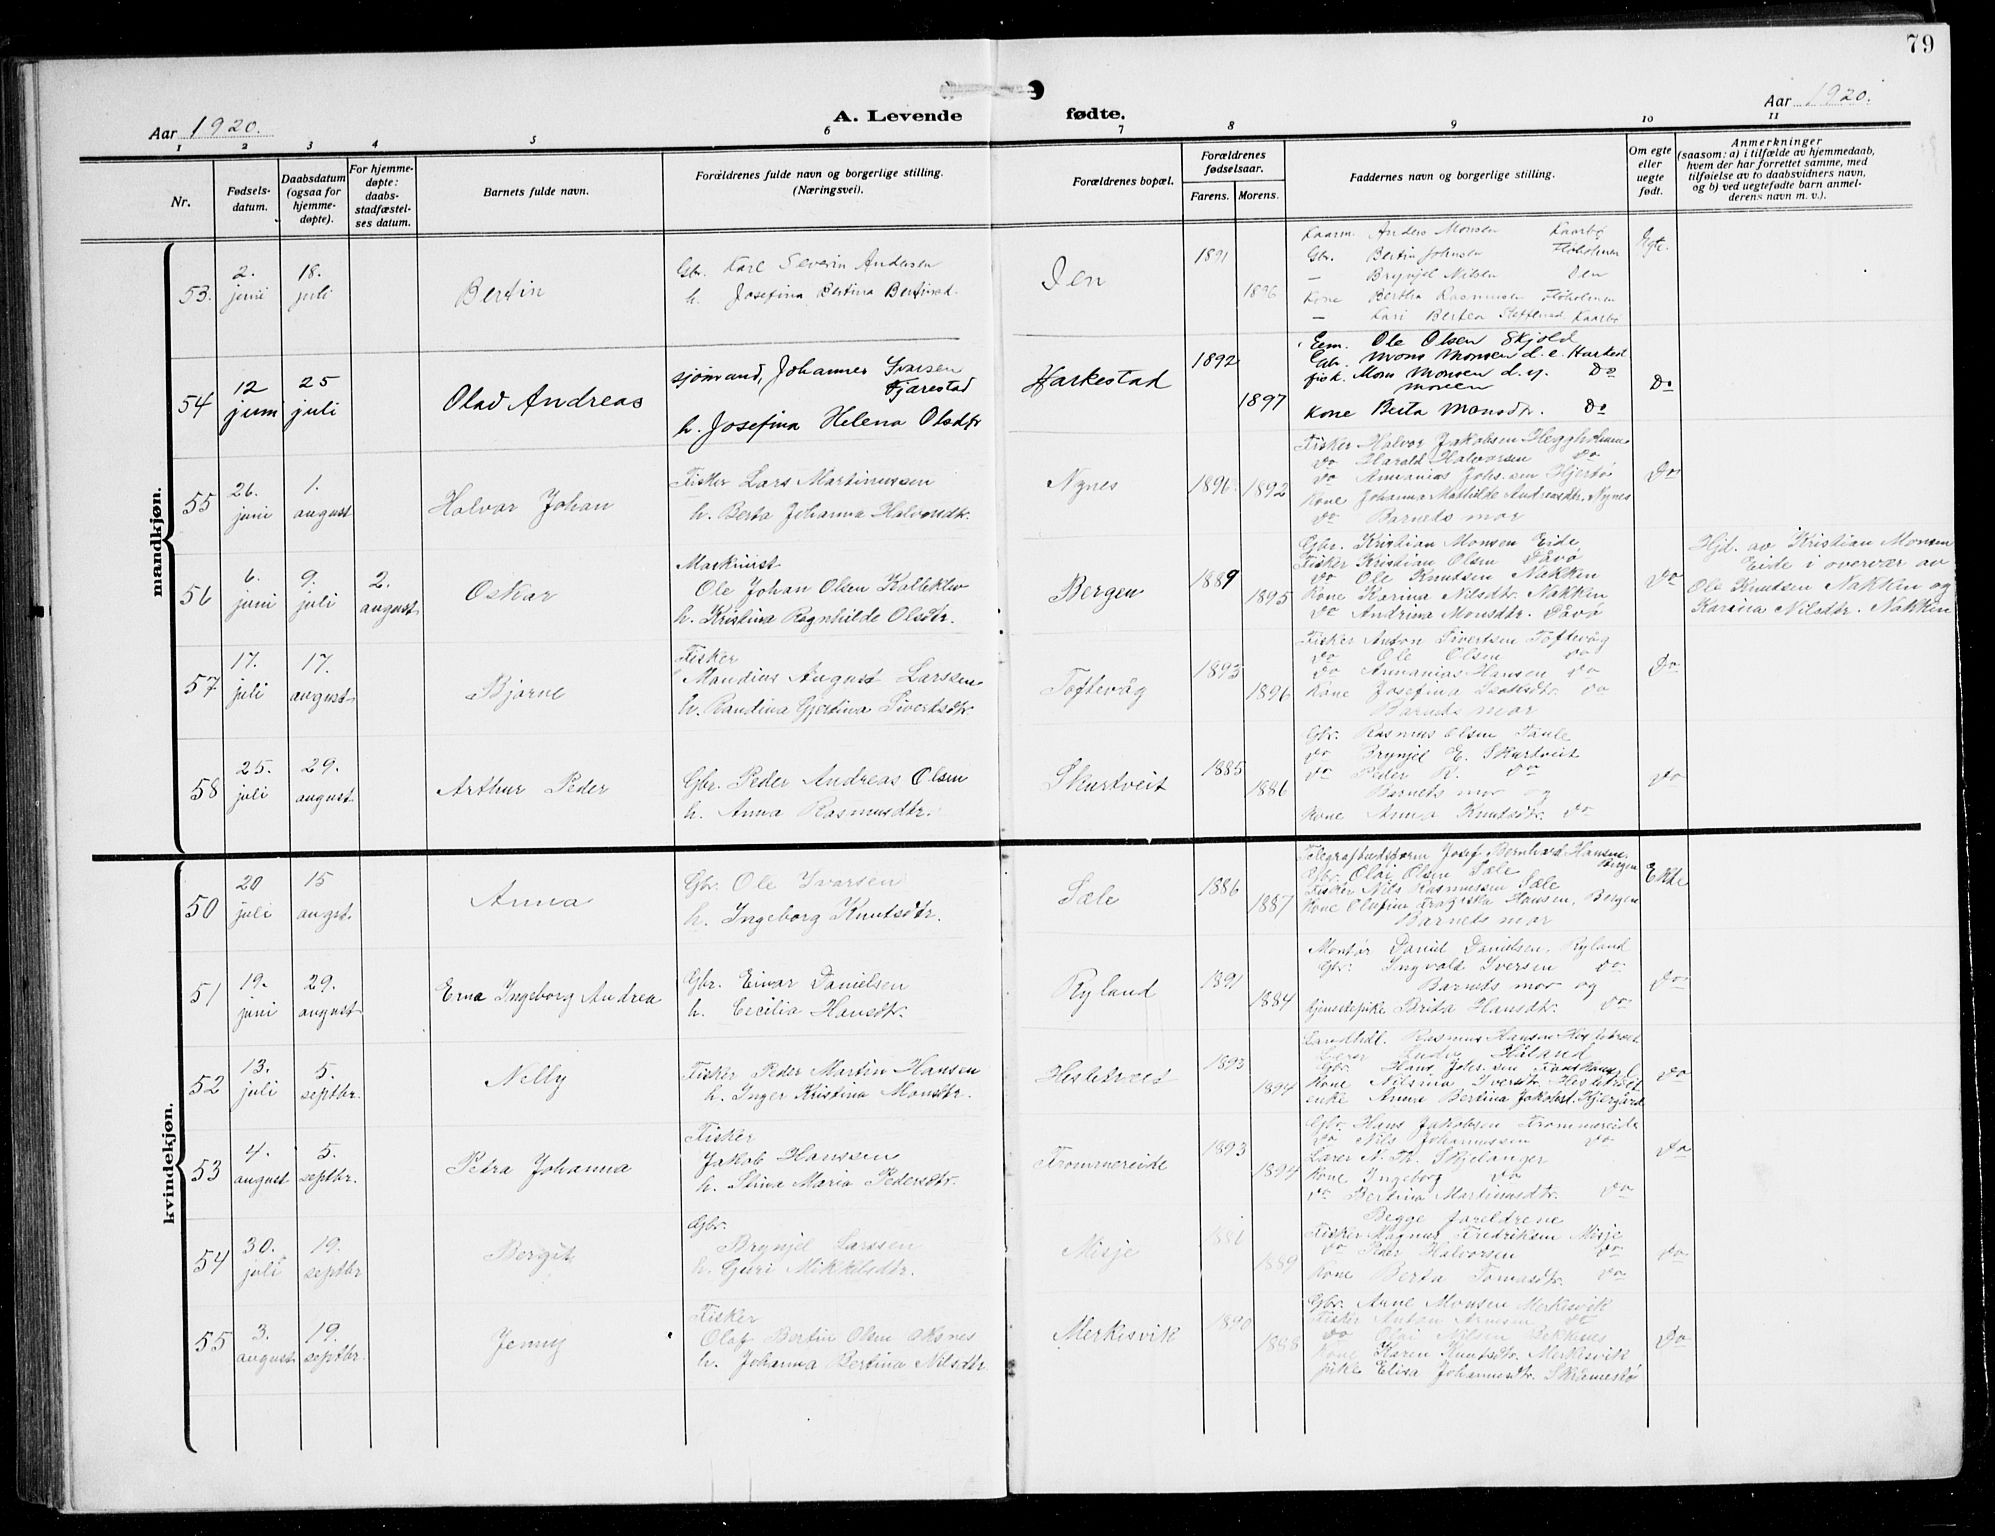 79
Aar 1920.
A. Levende fødte.
Aar 1920.
1 2 3 4 5 6 7 8 9 10 11
Nr.
Fødsels-
datum.
Daabsdatum
(ogsaa for
hjemme-
døpte).
For hjemme-
døpte:
daabs-
stadfæstel-
ses datum.
Barnets fulde navn.
Forældrenes fulde navn og borgerlige stilling.
(Næringsvei).
Forældrenes bopæl.
Forældrenes
fødselsaar.
Farens. Morens.
Faddernes navn og borgerlige stilling.
Om egte
eller
uegte
født.
Anmerkninger
(saasom: a) i tilfælde av hjemmedaab,
hvem der har forrettet samme, med
tilføielse av to daabsvidners navn,
og b) ved uegtefødte barn anmel-
derens navn m. v.).
mandkjøn.
53. 2. juni 18. juli Bertin
Gbr. Karl Severin Andersen
h. Josefina Bertina Bertinsd.
Den 1891 1896
Kaarm. Anders Monsen Kaarbø
Gbr. Bertin Johnsen Floholmen
— Brynjel Nilsen Den
Kone Bertha Rasmussen Floholmen
— Kari Bertea Kaarbø
Egte.
54 12 juni 25 juli Olad Andreas
sjømand, Johannes Ivarsen
Tjarestad
h. Josefina Helena Olsdtr
Harkestad 1892 1897
Eem. Ole Olsen Skjold
Gbr. Mons Monsen d. e. Harkest
fisk. Mons Monsen d. y. Do
monsen
Kone Berta Monsdtr. Do
Do
55 26. juni 1. august Halvar Johan
Fisker Lars Martinussen
h. Berta Johanna Halvorsdtr.
Nynes 1896. 1892
Fisker Halvor Jakobsen Heggholmen
Do Harald Halvorsen Do
Do Annanias Johs.sen Hjertø
Kone Johanna Mathilde Andreasdtr. Nynes
Do Barnets mor
Do
56 6. juni 9. juli 2. august Oskar
Markinist
Ole Johan Olsen Kollektev
h. Kristina Ragnhilde Olsdtr.
Bergen 1889 1895
Gbr. Kristian Monsen Eide
Fisker Kristian Olsen Dåvø
Do Ole Knutsen Nakken
Kone Karina Nilsdtr. Nakken
Do Andrina Monsdtr. Dåvø
Do
Hjd. av Kristian Monsen
Eide i overvær av
Ole Knutsen Nakken og
Karina Nilsdtr. Nakken
57 17. juli 17. august Bjarne
Fisker
Mandius August Larssen
h. Randina Gjertina Sivertsdtr.
Toftevåg 1893 1896
Fisker Anton Sivertsen Toftevåg
Do Ole Olsen Do
Do Annanias Hansen Do
Kone Josefina Do
Barnets mor
Do
58 25. juli 29. august Arthur Peder
Gbr. Peder Andreas Olsen
h. Anna Rasmusdtr.
Skurtveit 1885 1886
Gbr. Rasmus Olsen Taule
Do Brynjel E. Skurtveit
Do Peder R. Do
Barnets mor og
Kone Anna Knutsdtr. Do
Do
kvindekjøn.
50 20 juli 15 augst Anna
Gbr. Ole Ivarsen
h. Ingeborg Knutsdtr.
Sæle 1886 1887
Telegrafbudstorm Josef Bernhard Hansen Bergen
Gbr. Olai Olsen Sæle
Fisker Nils Rasmussen Sæle
Kone Olufina Hansen, Bergen
Barnets mor
Ekte
51 19. juni 29. august Erna Ingeborg Andrea
Gbr. Einar Danielsen
h. Cecilia Hansdtr.
Ryland 1891 1884
Montør Daniel Danielsen, Ryland
Gbr. Ingvald Iversen Do
Barnets mor og
tjenestepike Brita Hansdtr. Do
Do
52 13. juli 5. septbr. Nelly
Fisker Peder Martin Hansen
h. Inger Kristina Monsdtr.
Hestetræet 1893 1894
Landhdl. Rasmus Hansen
Lærer Håland
Gbr. Hans Johs.sen
Kone Nilsina Iversdtr.
enke Anna Bertina Jakobsd. Hjergård
Do
53 4. august 5. septbr. Petra Johanna
Fisker
Jakob Hanssen
h. Stina Maria Pedersdtr.
Frommereide 1893 1894
Gbr. Hans Jakobsen Frommereide
Do Nils Johannussen Do
Lærer N. Th. Skjelanger
Kone Ingeborg Do
Do Bertina Martinusdtr. Do
Do
54 30. juli 19. septbr Bergit
Gbr.
Brynjel Larssen
h. Guri Mikkelsdtr.
Misje 1881 1889
Begge foreldrene
Fisker Magnus Fredriksen Misje
Do Peder Halvorsen Do
Kone Berta Tomasdtr. Do
Do
55 3. august 19. septbr. Jenny
Fisker
Olaf Bertin Olsen Oksnes
h. Johanna Bertina Nilsdtr.
Merkesvik 1890 1898
Gbr. Arne Monsen Merkesvik
Fisker Anton Arnesen Do
Do Olai Nilsen Bekkenes
Kone Karen Knutsdtr. Merkesvik
pike Elisa Johannesdtr. Skramestø
Do